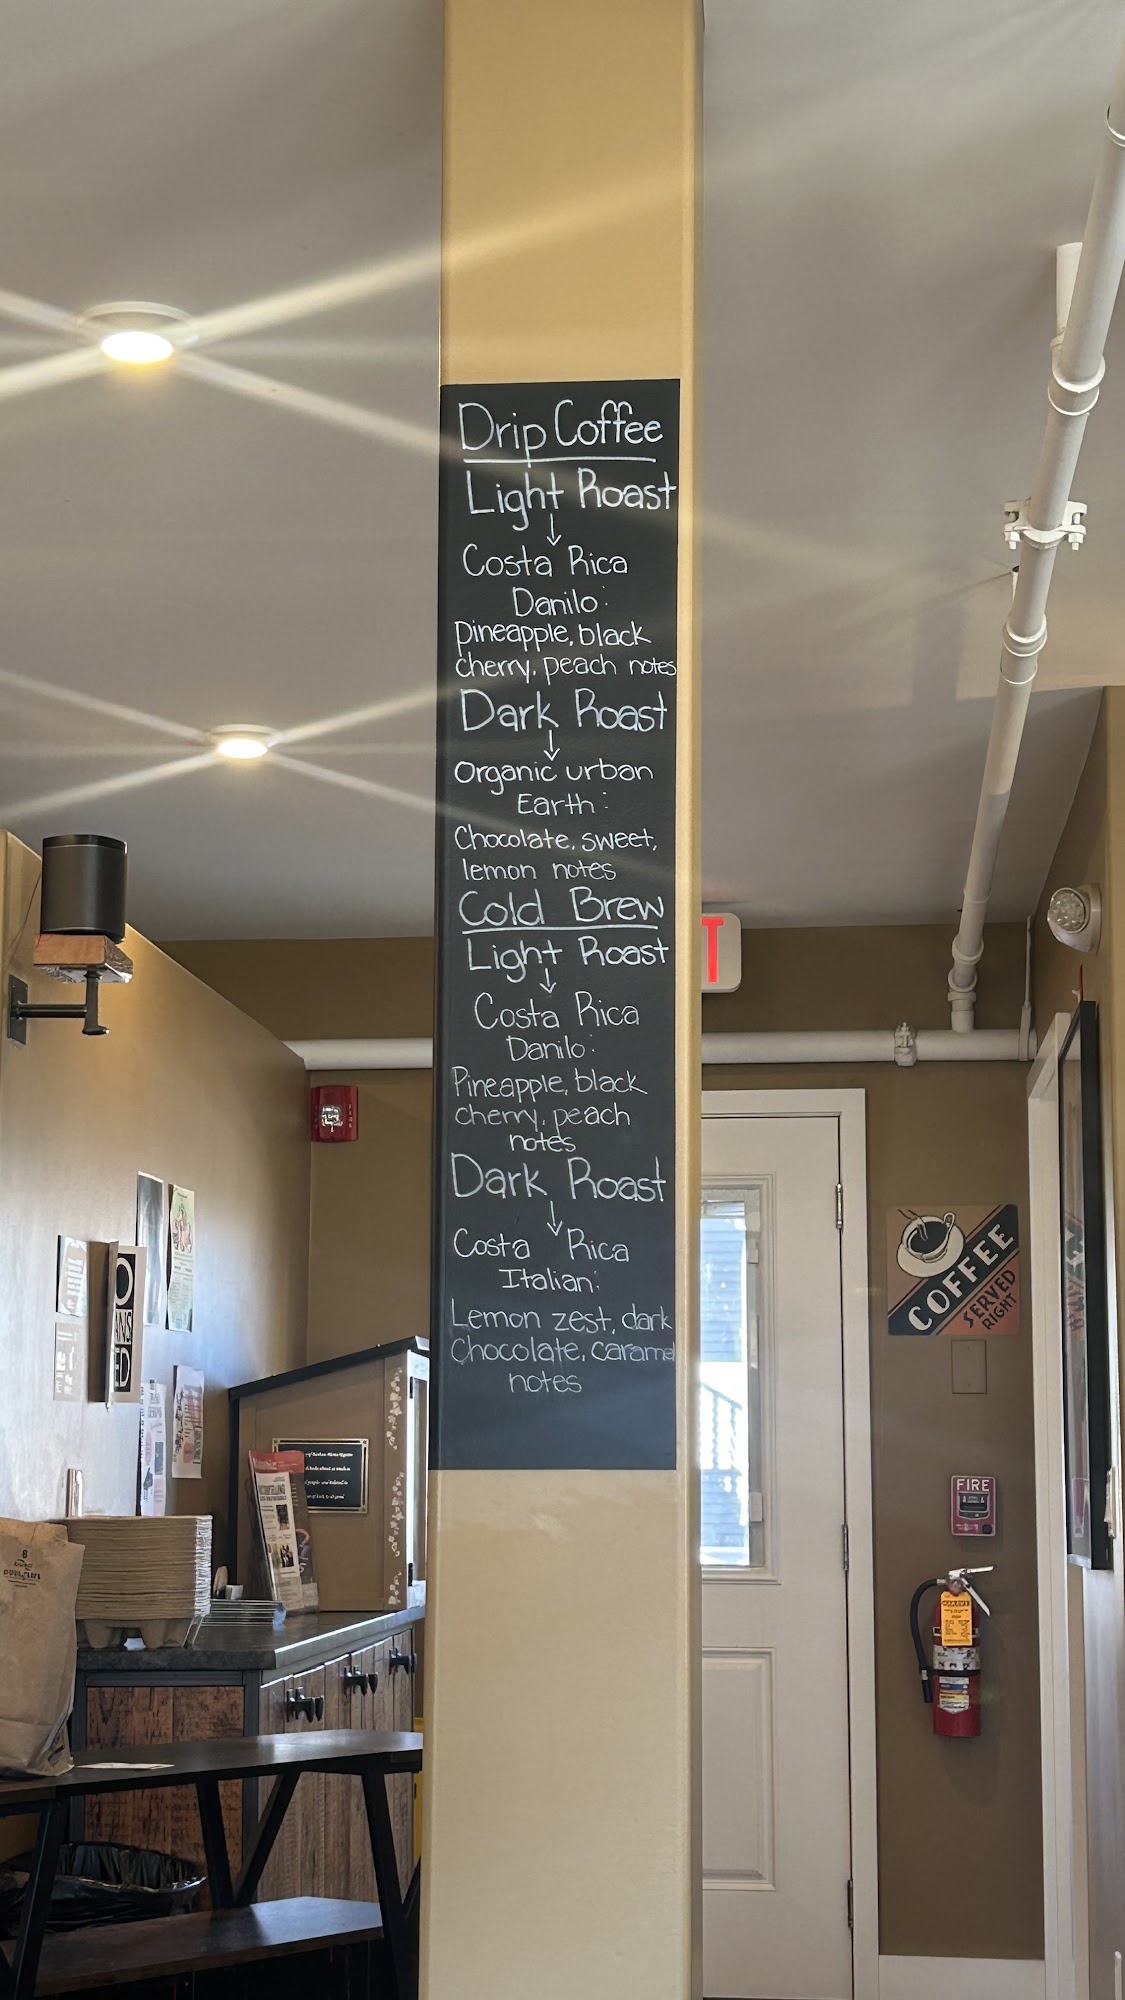 Drip Coffee
Light Roast
Costa Rica
Danilo:
Pineapple, black
cherry, peach notes
Dark Roast
Organic urban
Earth:
Chocolate, sweet,
lemon notes
Cold Brew
Light Roast
Costa Rica
Danilo:
Pineapple, black
cherry, peach
notes
Dark Roast
Costa Rica
Italian:
Lemon zest, dark
Chocolate, caramel
notes
T
COFFEE
SERVED
RIGHT
FIRE